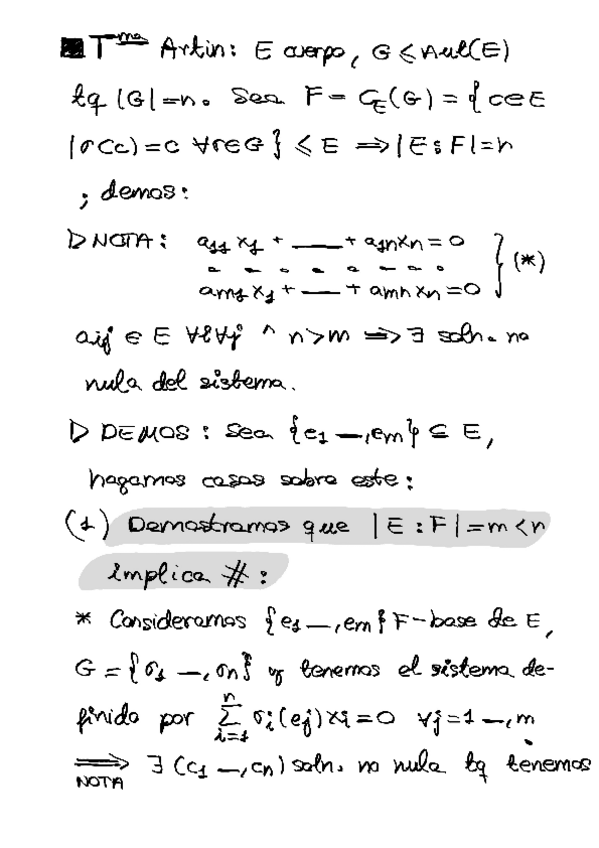 ■ T^ma Artin: E cuerpo, G ≤ Aut(E)
tq |G|=n. Sea F = C_E(G) = {c∈E
|σ(c)=c ∀σ∈G} ≤ E ⟹ |E:F|=n
; demos:
▷ NOTA: a₁₁x₁ + — + a₁ₙxₙ = 0
- - - - - - - (*)
aₘ₁x₁ + — + aₘₙxₙ = 0
aᵢⱼ ∈ E ∀i∀j ∧ n>m ⟹ ∃ soln. no
nula del sistema.
▷ DEMOS: Sea {e₁ —, eₘ} ⊆ E,
hagamos casos sobre este:
(1) Demostramos que |E:F|=m<n
implica #:
* Consideramos {e₁ —, eₘ} F-base de E,
G = {σ₁ —, σₙ} y tenemos el sistema de-
finido por ∑_{i=1}^{n} σᵢ(eⱼ)xᵢ=0 ∀j=1 —, m.
⟹_{NOTA} ∃ (c₁ —, cₙ) soln. no nula tq tenemos